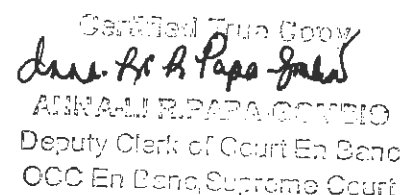 Certified True Copy
ANNA-LI R.PAPA-GOMBIO
Deputy Clerk of Court En Banc
OCC En Banc, Supreme Court